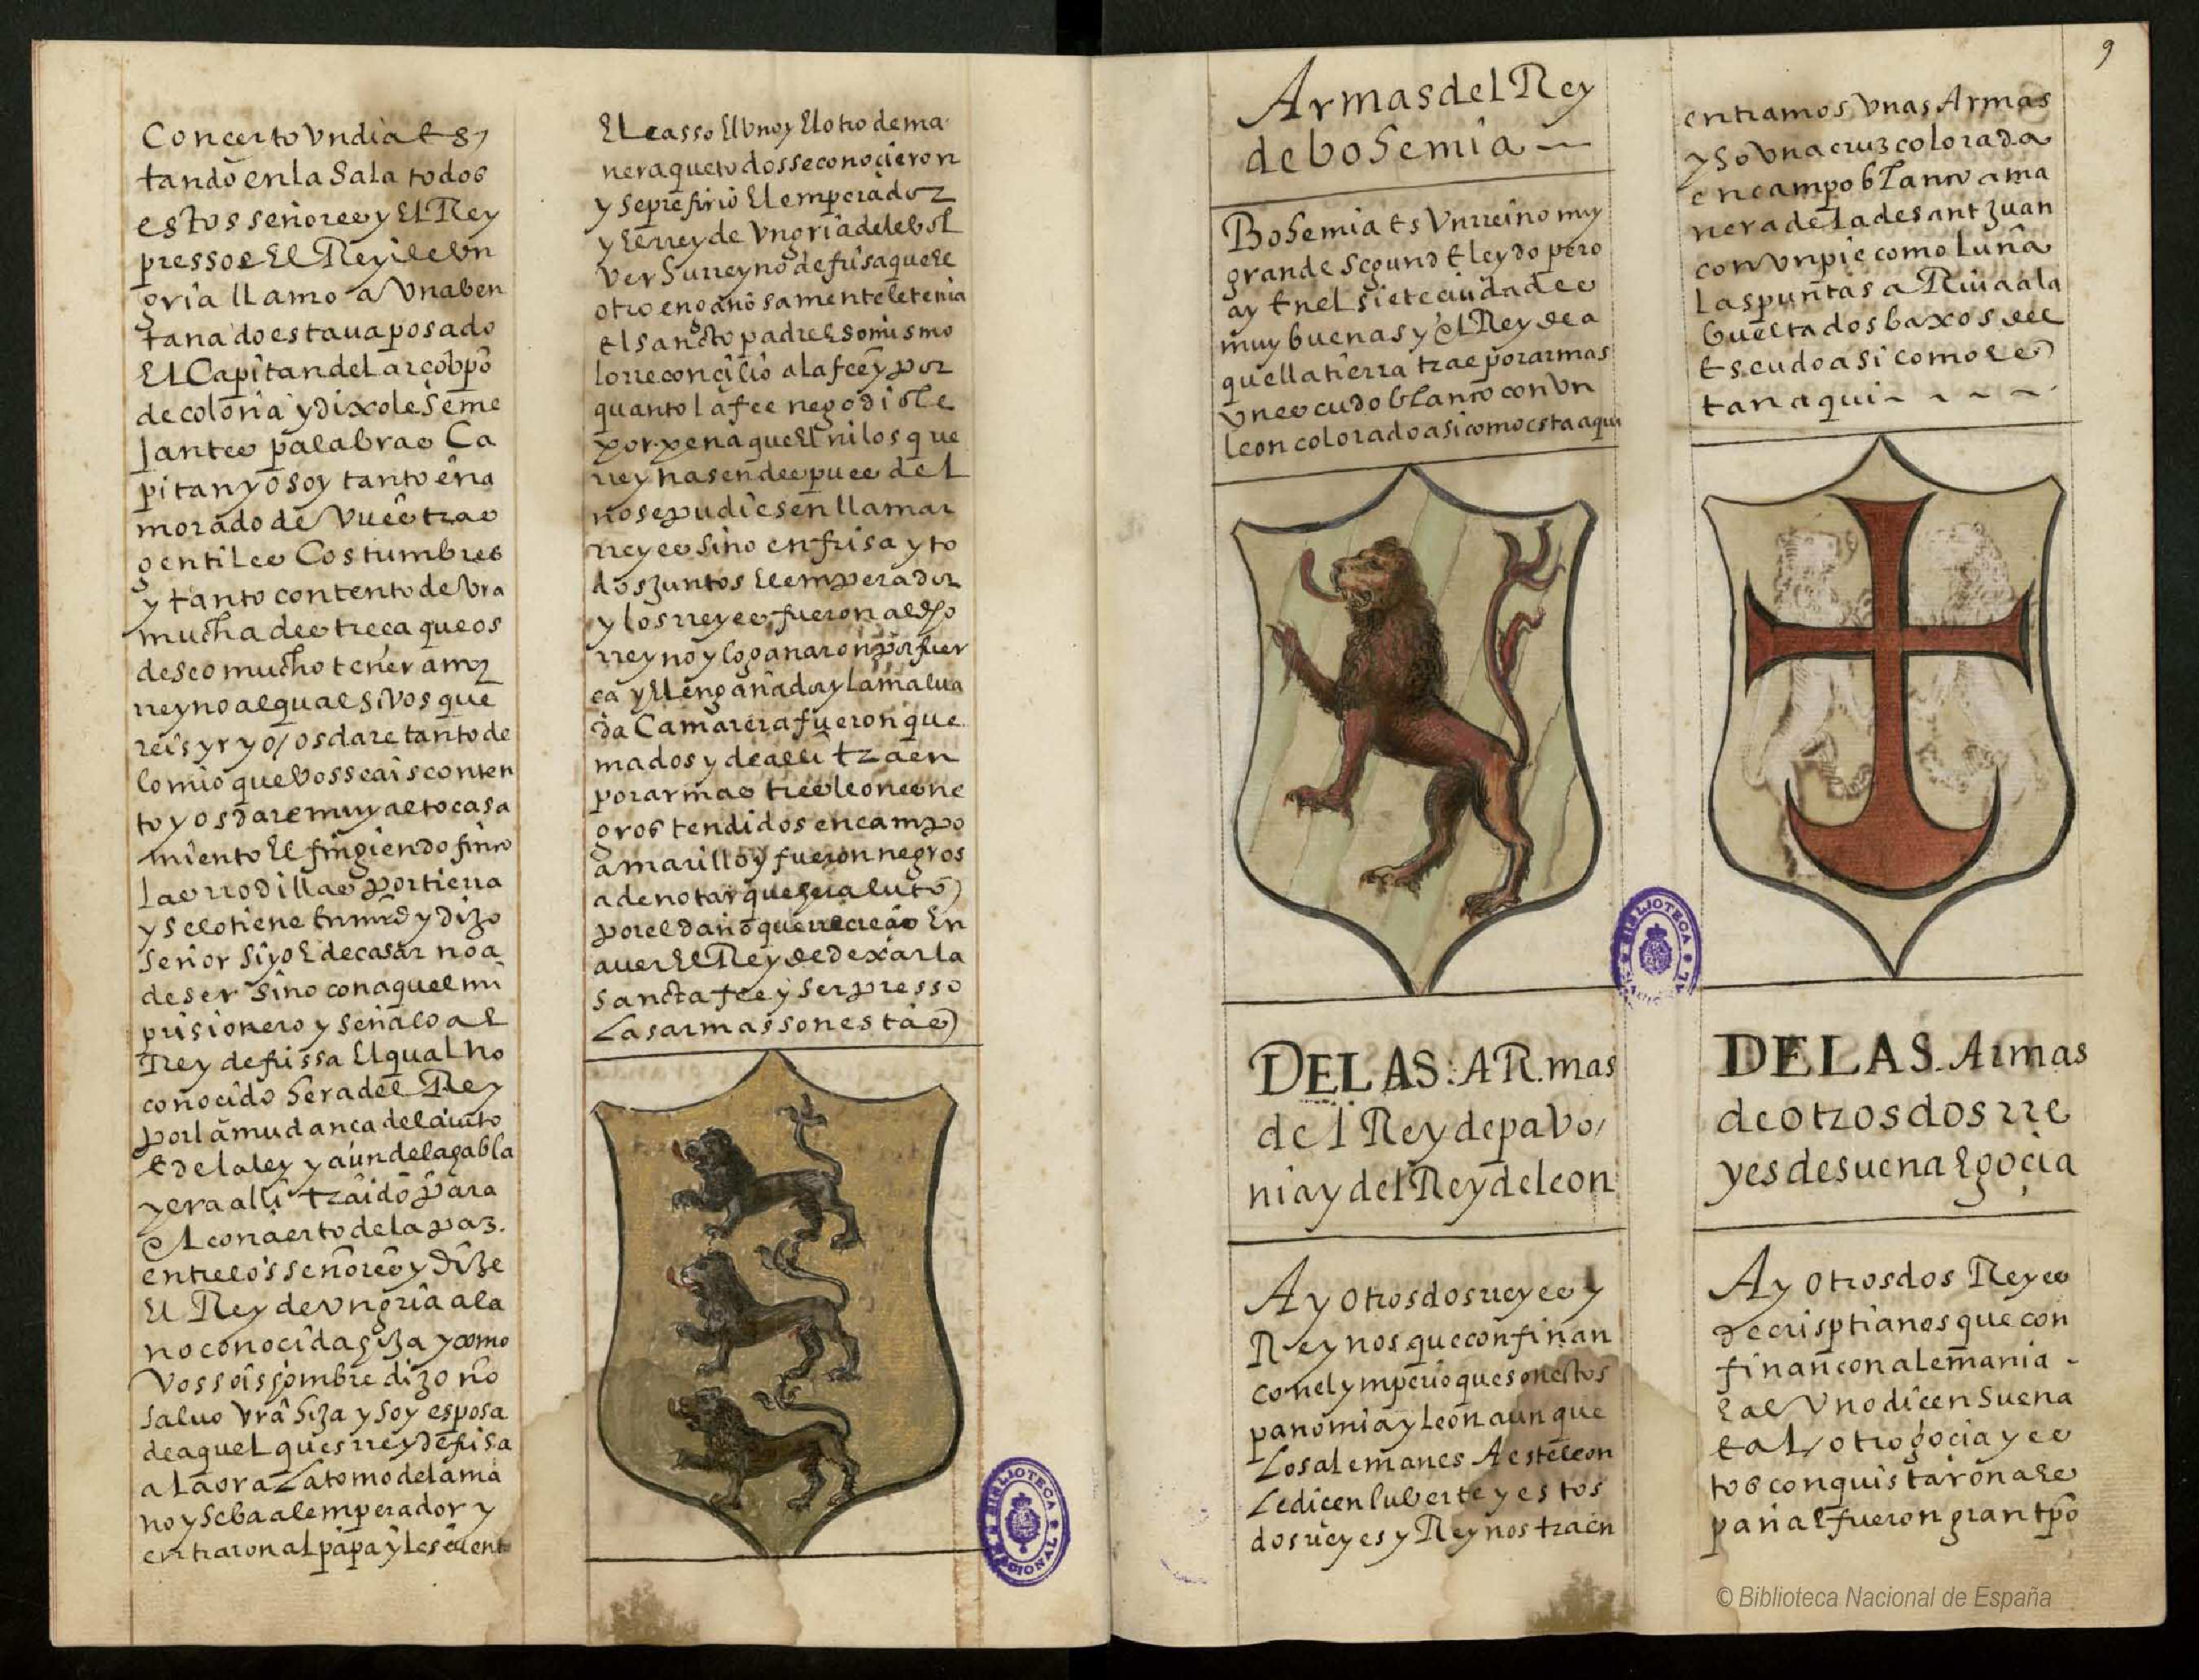 Concerto Vn dia es
tando en la Sala todos
estos señores y El Rey
pressos El Rey de Vn
gria llamo a Vna ben
tana do estaua posado
El Capitan del arcobpõ
de colonia y dixole seme
Jantes palabras Ca
pitan yo soy tanto ena
morado de Vuestras
gentiles Costumbres
y tanto contento de Vra
mucha destreca que os
deseo mucho tener a my
rreyno al qual si Vos que
reis yr yo os dare tanto de
lo mio que Vos seais conten
to y os dare muy alto casa
miento El fingiendo finco
las rrodillas por tierra
y se lo tiene en mrd y dizo
señor si yo E de casar no a
de ser sino con aquel mi
prisionero y señalo al
Rey de frissa El qual no
conocido hera del Rey
por la mudanca del auito
E de la ley y aun de la gabla
y era alli traido para
El concierto de la paz.
entre los señores y dize
El Rey de Vngria a la
no conocida hiza y como
Vos sois hombre dizo no
saluo Vra hiza y soy esposa
de aquel ques rrey de frisa
a la ora La tomo de la ma
no y se ba al emperador y
entraron al papa y les cuent
El casso El Vno y El otro de ma
nera que todos se conocieron
y se prefirio El emperador
y El rrey de Vngria de le bol
ver Su rreyno de frisa que El
otro enganosamente le tenia
El sancto padre Eso mismo
lo rreconcilio a la fee y por
quanto la fee nego diole
por pena que El ni los que
rreynasen despues del
no se pudiesen llamar
rreyes sino en frisa y to
dos Juntos El emperador
y los rreyes fueron al dho
rreyno y lo ganaron por fuer
ca y El engañador y la malua
da Camarera fueron que
mados y de alli traen
por armas tres leones ne
gros tendidos en campo
amarillo y fueron negros
a denotar que hera luto
por el daño que rrecreçio En
auer El Rey de dexar la
sancta fee y ser presso
Las armas son estas
Armas del Rey
de bohemia
Bohemia es Vn rreino muy
grande segund E leydo pero
ay En el siete ciudades
muy buenas y El Rey de a
quella tierra trae por armas
Vn escudo blanco con Vn
leon colorado asi como esta aqui
DE LAS: AR.mas
del Rey de pavo/
nia y del Rey de leon
Ay otros dos rreyes y
Reynos que confinan
con el ymperio que son estos
panonia y leon aun que
Los alemanes A este leon
Le dicen luberte y estos
dos rreyes y Reynos traen
9
entramos Vnas Armas
y so Vna cruz colorada
en campo blanco a ma
nera de la de sant Juan
con Vn pie como Luna
Las puntas a Riua a la
buelta dos baxos del
Escudo asi como es
tan aqui
DE LAS. Armas
de otros dos rre
yes de suena E gocia
Ay otros dos Reyes
de crisptianos que con
finan con alemania
E al Vno dicen Suena
E al otro gocia y es
tos conquistaron a Es
paña E fueron gran tpõ
BIBLIOTECA NACIONAL
BIBLIOTECA NACIONAL
© Biblioteca Nacional de España